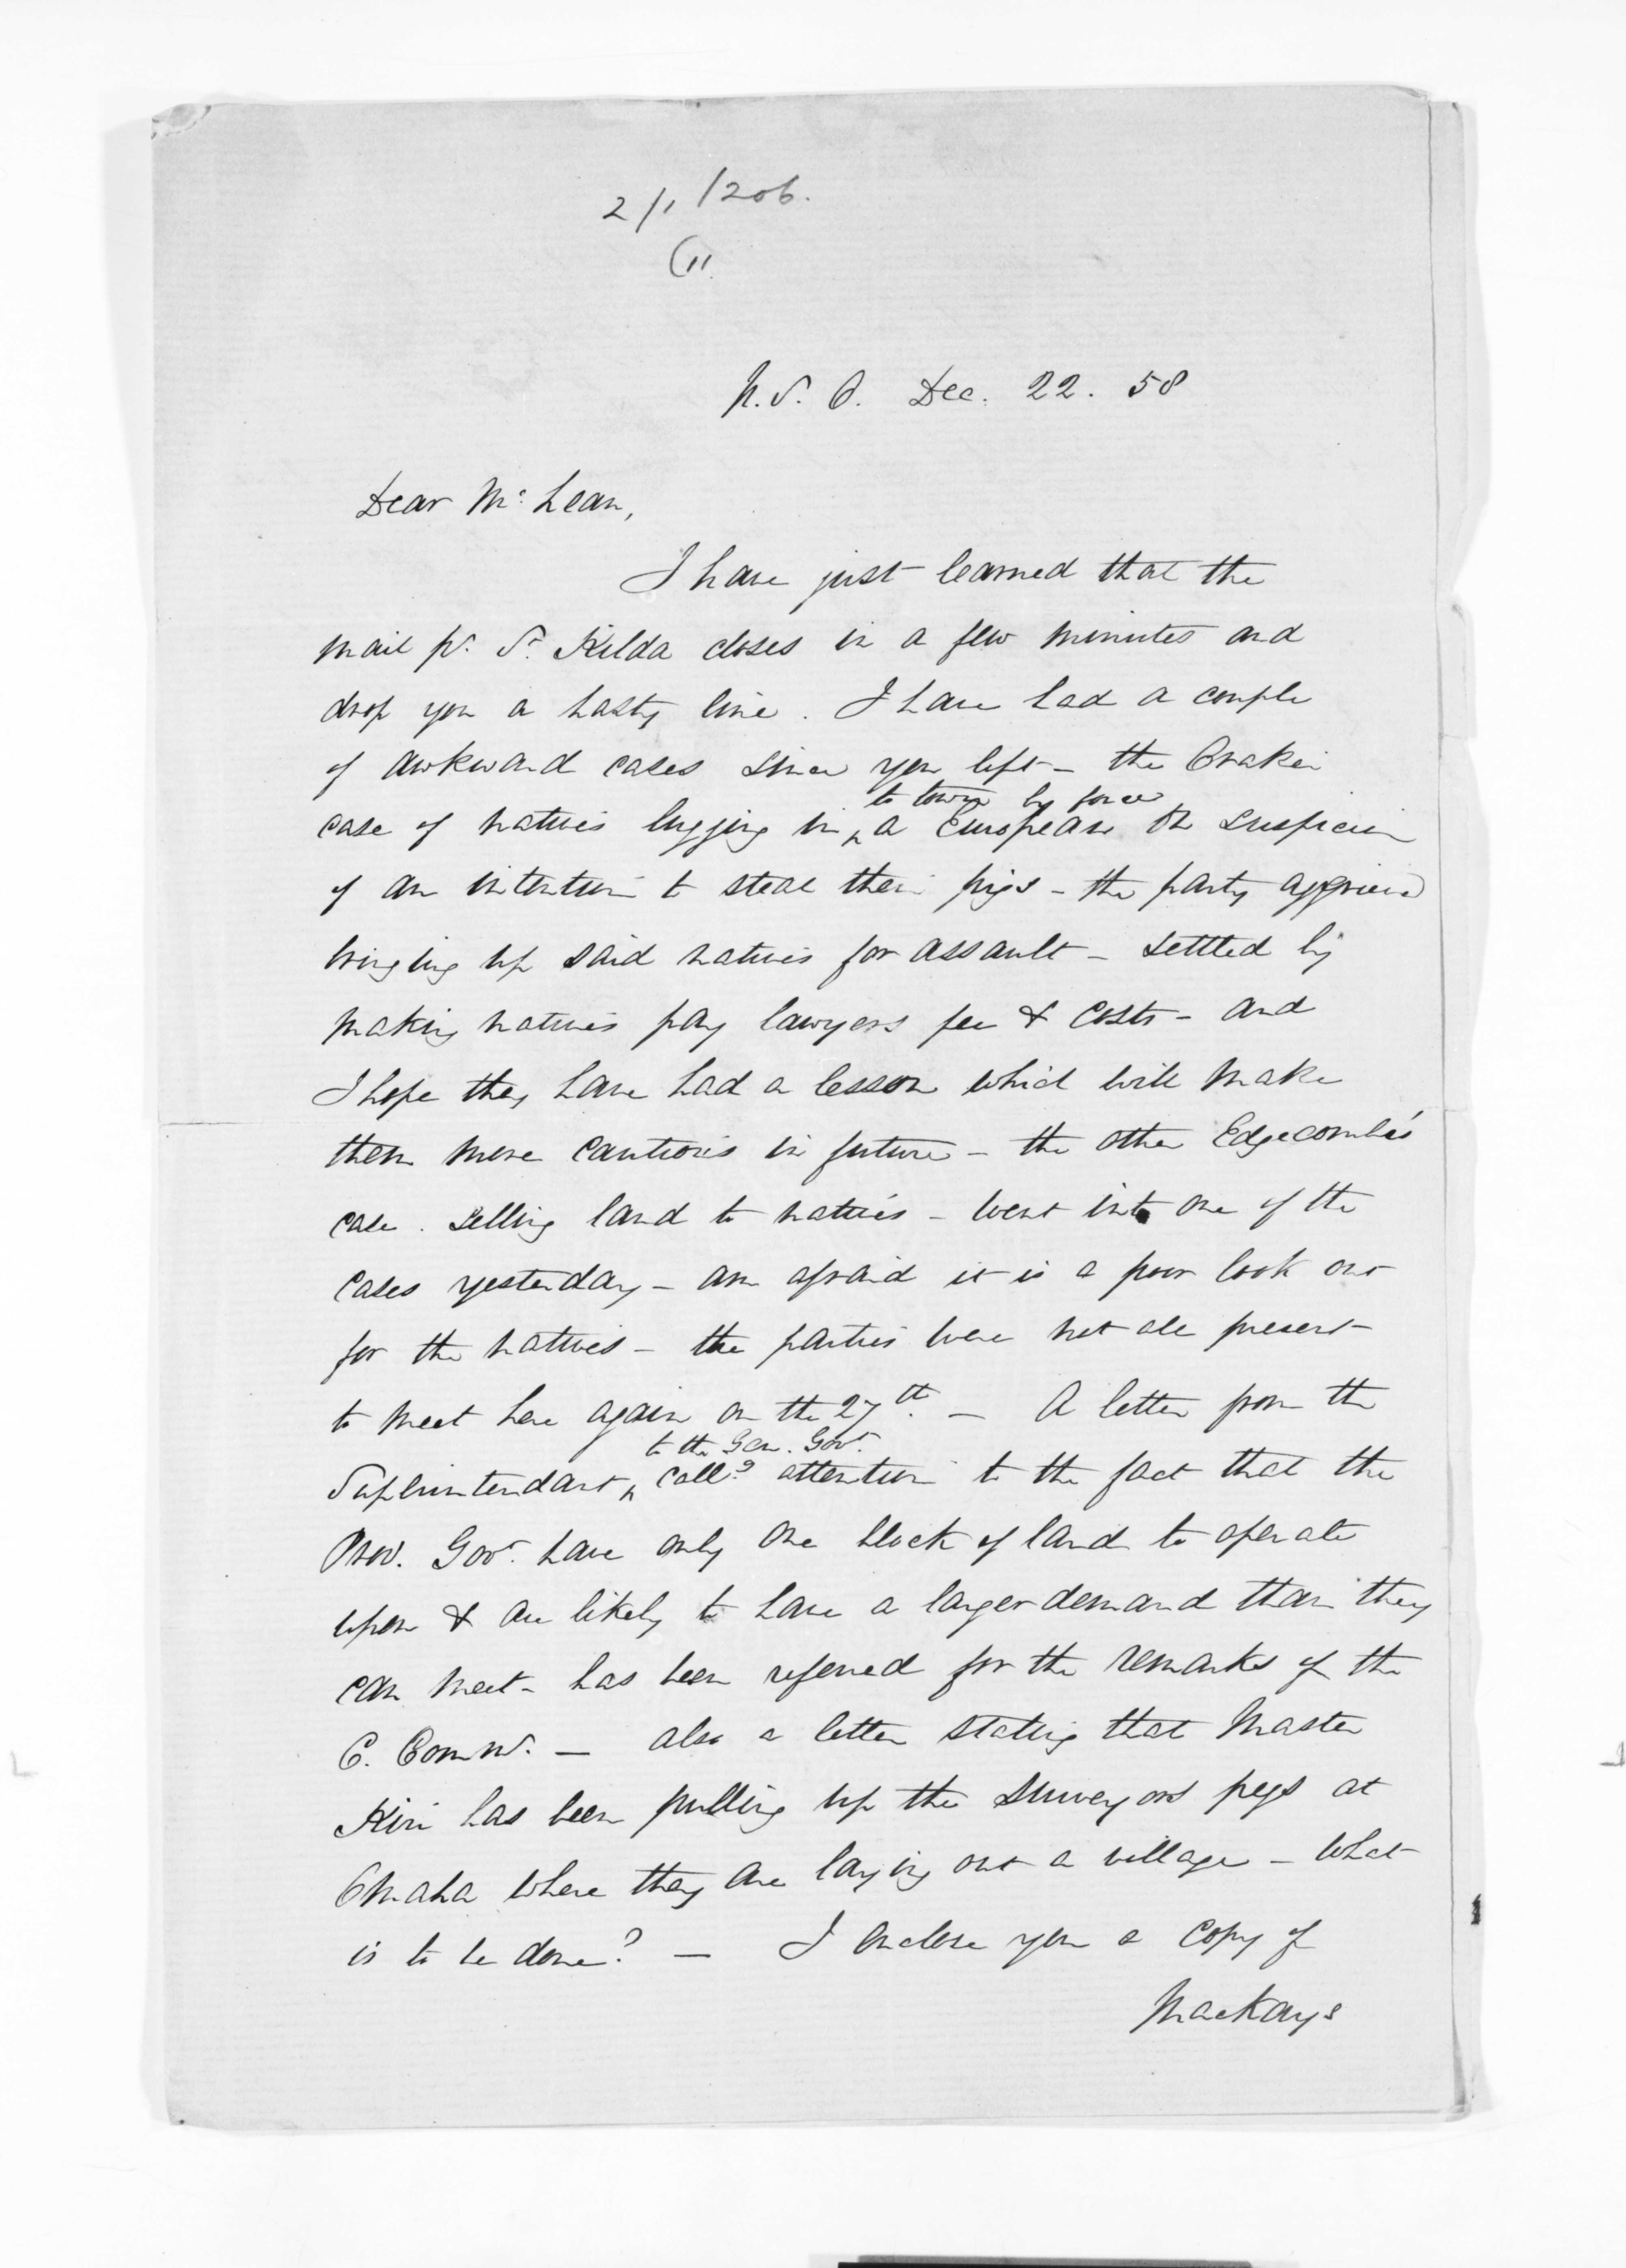 2/1/206.
(11.
N.S.O. Dec. 22. 58
Dear McLean,
I have just learned that the
mail pr. St. Kilda closes in a few minutes and
drop you a hasty line. I have had a couple
of awkward cases since you left - the Orakei
to town by force
case of natives lugging in ^ a European on suspicion
of an intention to steal their pigs - the party aggrieved
bringing up said natives for assault - settled by
making natives pay lawyers fee & costs - and
I hope they have had a lesson which will make
them more cautious in future - the other Edgecombe's
case. selling land to natives - went into one of the
cases yesterday - am afraid it is a poor look out
for the natives - the parties were not all present
to meet here again on the 27th. - A letter from the
to the Gen. Govt.
Superintendant ^ callg. attention to the fact that the
Prov. Govt. have only one block of land to operate
upon & are likely to have a larger demand than they
can meet - has been referred for the remarks of the
C. Commr. - also a letter stating that Master
Kiri has been pulling up the surveyors pegs at
Omaha where they are laying out a village - what
is to be done? - I enclose you a copy of
Mackays